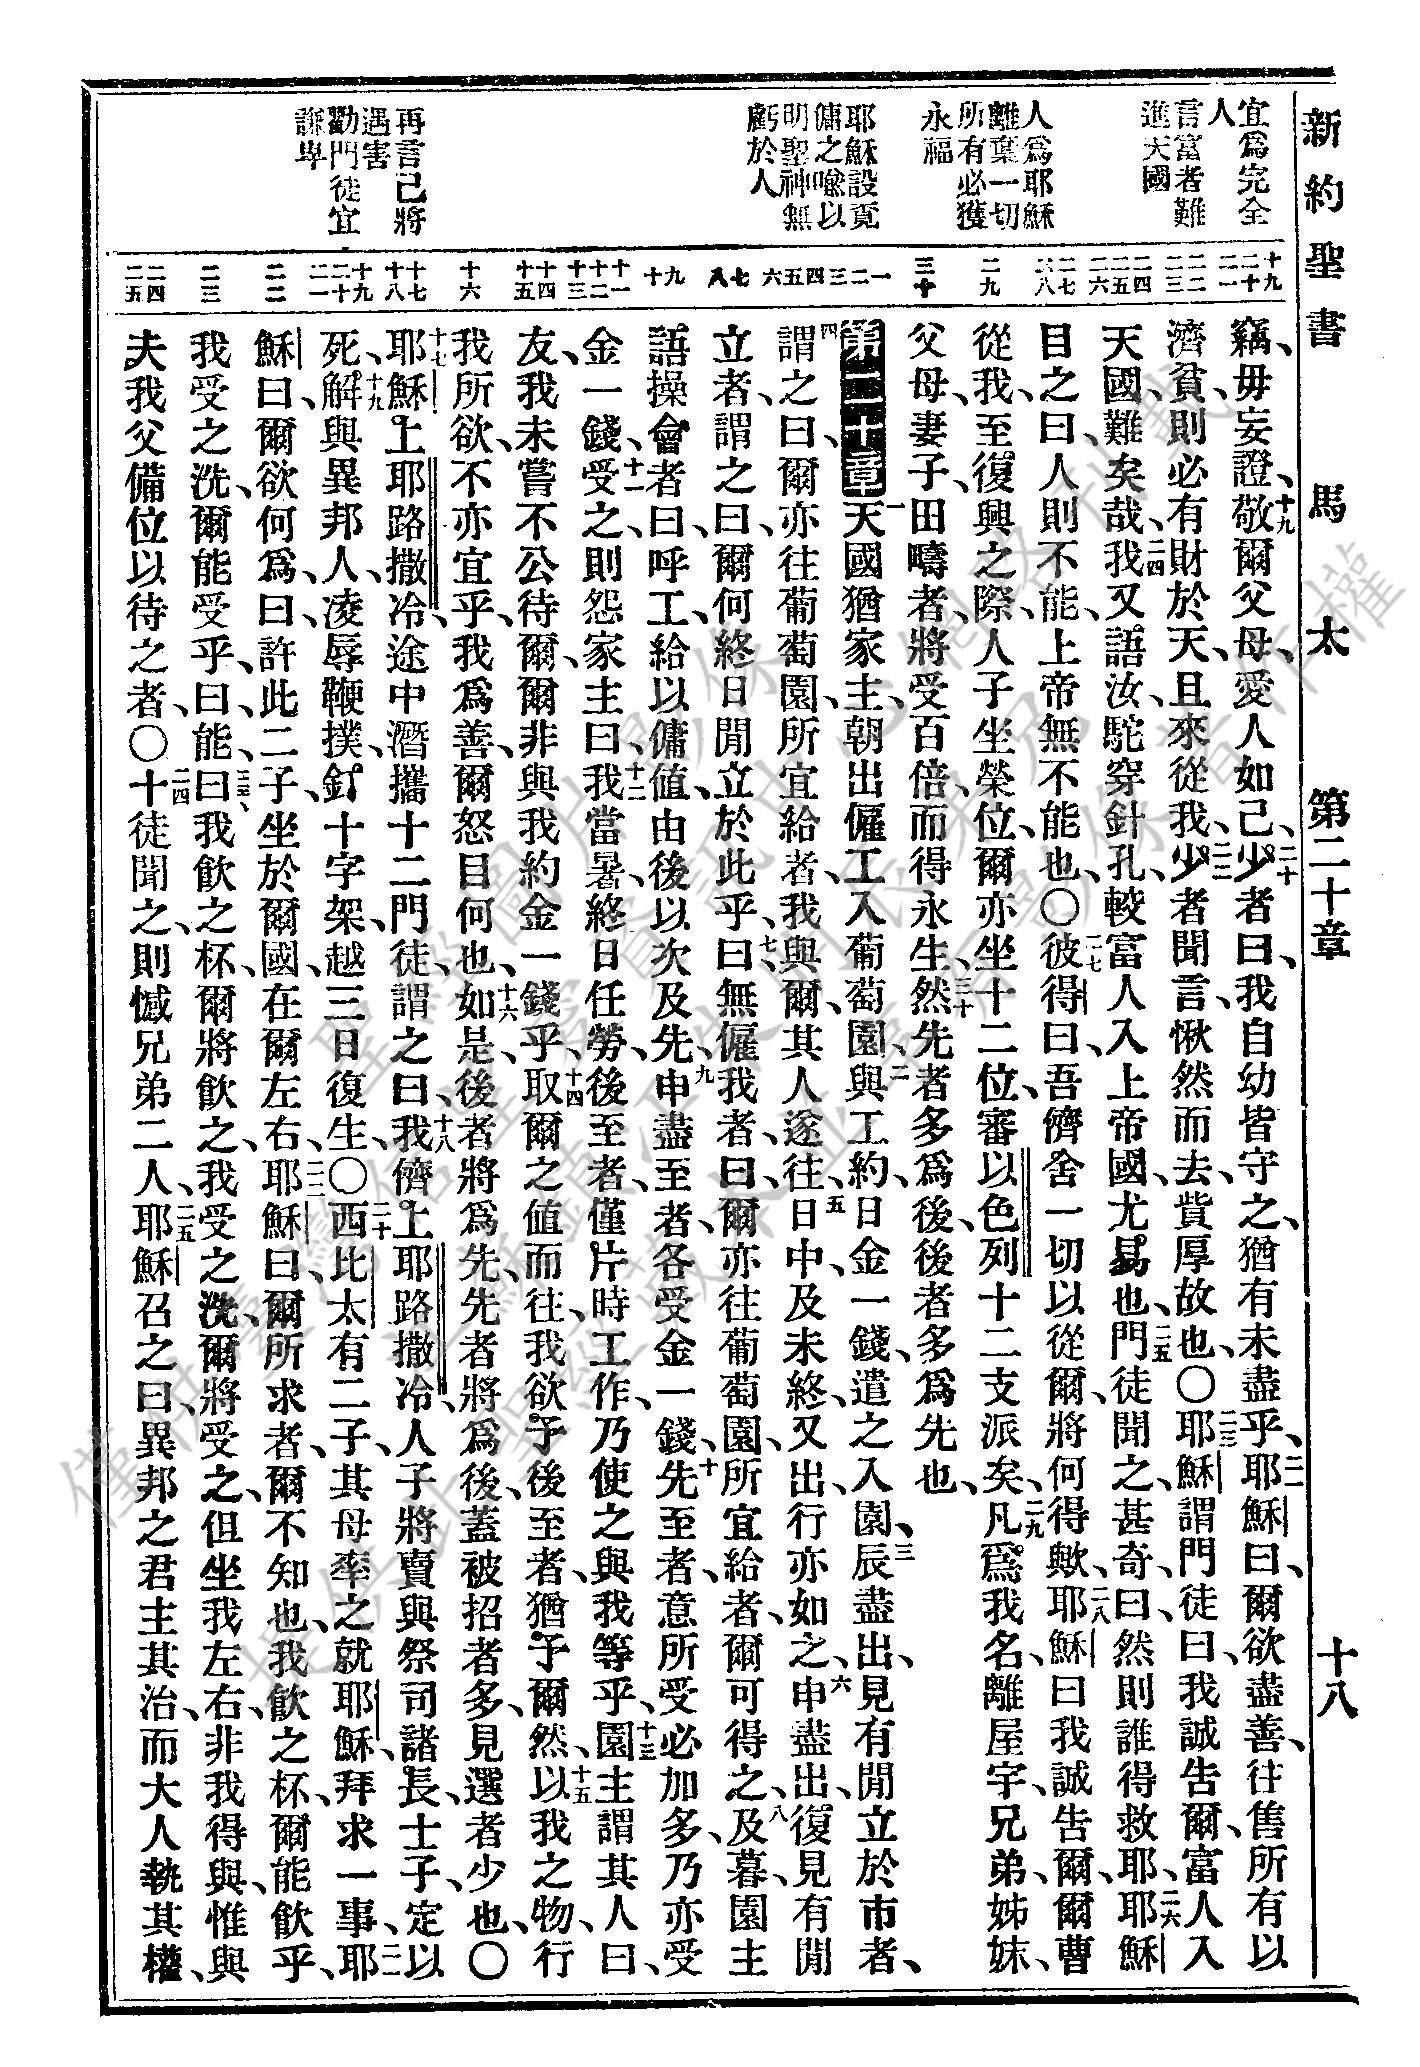 新約聖書 馬太 第二十章 十八
宜為完全
人
言富者難
進天國
人為耶穌
離棄一切
所有必獲
永福
耶穌設覓
傭之喻以
明聖神無
虧於人
再言己將
遇害
勸門徒宜
謙卑
十九 二十 二一 二二 二三 二四 二五 二六 二七 二八 二九 三十 一 二 三 四 五 六 七 八 九 十 十一 十二 十三 十四 十五 十六 十七 十八 十九 二十 二一 二二 二三 二四 二五
竊、毋妄證、十九敬爾父母、愛人如己、二十少者曰、我自幼皆守之、猶有未盡乎、二一耶穌曰、爾欲盡善、往售所有以
濟貧、則必有財於天、且來從我、二二少者聞言、愀然而去、貲厚故也、〇二三耶穌謂門徒曰、我誠告爾、富人入
天國、難矣哉、二四我又語汝、駝穿針孔、較富人入上帝國、尤易也、二五門徒聞之、甚奇、曰、然則誰得救耶、二六耶穌
目之曰、人則不能、上帝無不能也、〇二七彼得曰、吾儕舍一切以從爾、將何得歟、二八耶穌曰、我誠告爾、爾曹
從我、至復興之際、人子坐榮位、爾亦坐十二位、審以色列十二支派矣、二九凡為我名、離屋宇、兄弟、姊妹、
父母、妻子、田疇者、將受百倍、而得永生、三十然先者多為後、後者多為先也、
第二十章 一天國猶家主、朝出僱工入葡萄園、二與工約、日金一錢、遣之入園、三辰盡出、見有閒立於市者、
四謂之曰、爾亦往葡萄園、所宜給者、我與爾、其人遂往、五日中、及未終、又出、行亦如之、六申盡出、復見有閒
立者、謂之曰、爾何終日閒立於此乎、七曰、無僱我者、曰、爾亦往葡萄園、所宜給者、爾可得之、八及暮、園主
語操會者曰、呼工、給以傭值、由後以次及先、九申盡至者、各受金一錢、十先至者、意所受必加多、乃亦受
金一錢、十一受之、則怨家主曰、十二我當暑、終日任勞、後至者、僅片時工作、乃使之與我等乎、十三園主謂其人曰、
友、我未嘗不公待爾、爾非與我約金一錢乎、十四取爾之值而往、我欲予後至者、猶予爾然、十五以我之物、行
我所欲、不亦宜乎、我為善、爾怒目何也、十六如是、後者將為先、先者將為後、蓋被招者多、見選者少也、〇
十七耶穌上耶路撒冷、途中潛攜十二門徒、謂之曰、十八我儕上耶路撒冷、人子將賣與祭司諸長、士子、定以
死、十九解與異邦人、凌辱鞭撲、釘十字架、越三日復生、〇二十西比太有二子、其母率之就耶穌、拜求一事、二一耶
穌曰、爾欲何為、曰、許此二子、坐於爾國、在爾左右、二二耶穌曰、爾所求者、爾不知也、我飲之杯、爾能飲乎、
我受之洗、爾能受乎、曰、能、二三曰、我飲之杯、爾將飲之、我受之洗、爾將受之、但坐我左右、非我得與、惟與
夫我父備位以待之者、〇二四十徒聞之、則憾兄弟二人、二五耶穌召之曰、異邦之君主其治、而大人執其權、